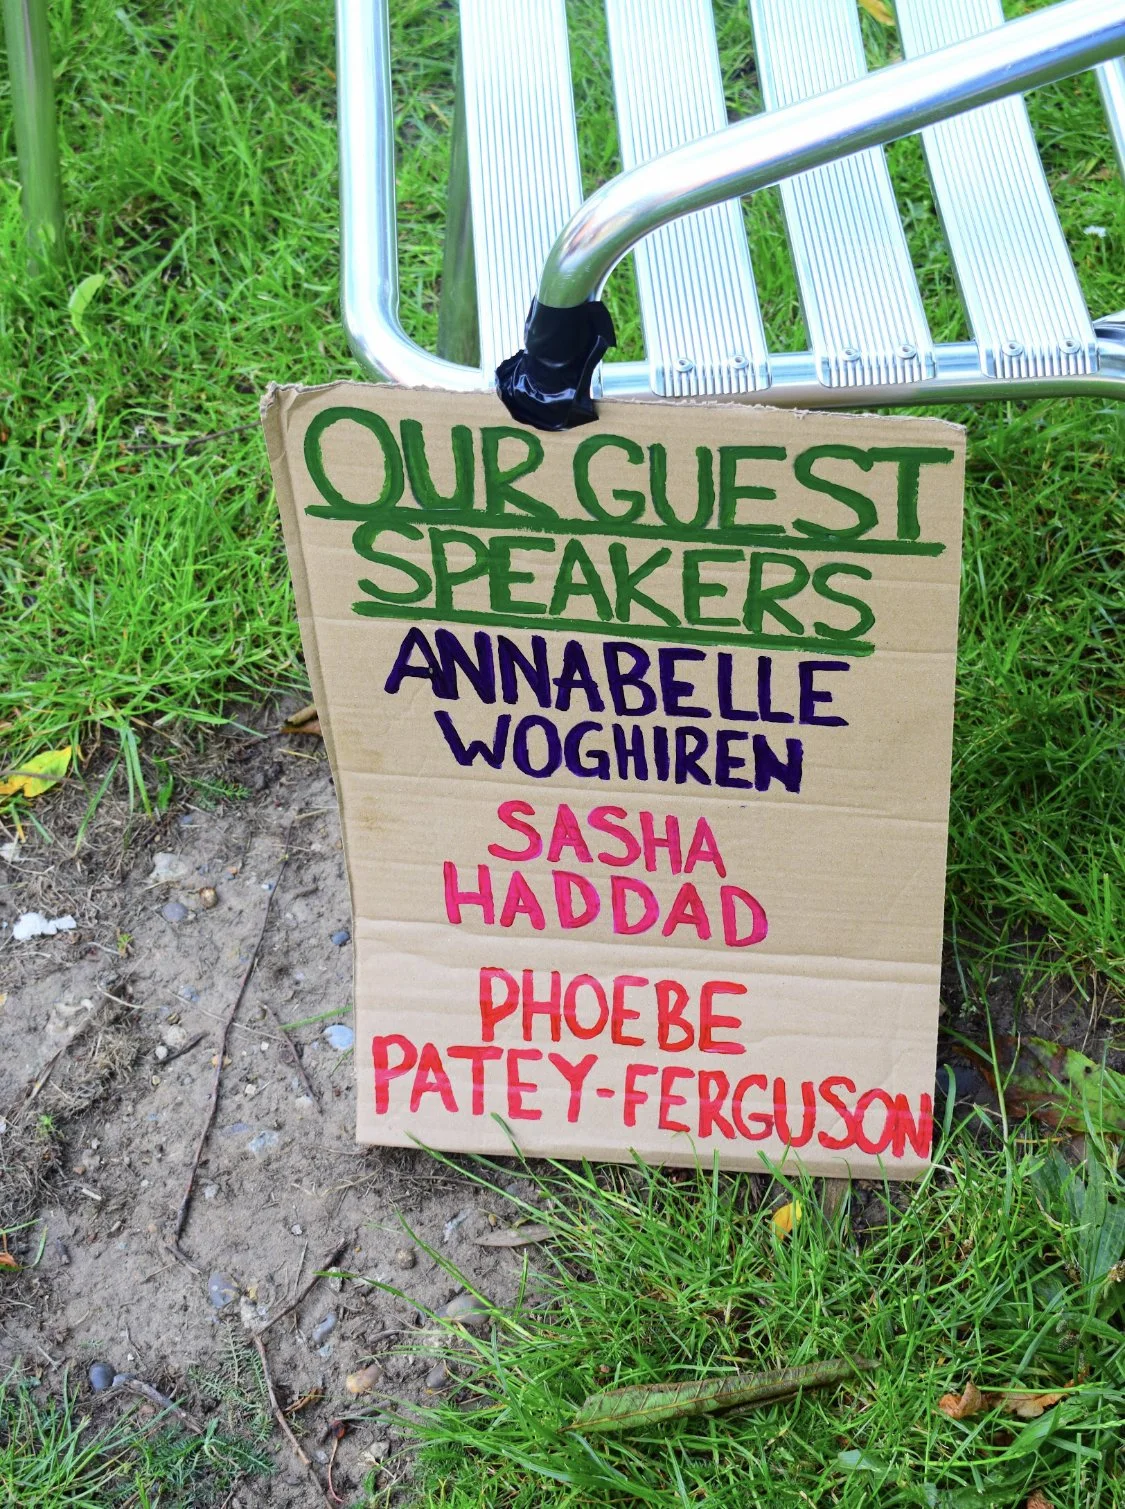 OUR GUEST
SPEAKERS
ANNABELLE
WOGHIREN
SASHA
HADDAD
PHOEBE
PATEY-FERGUSON